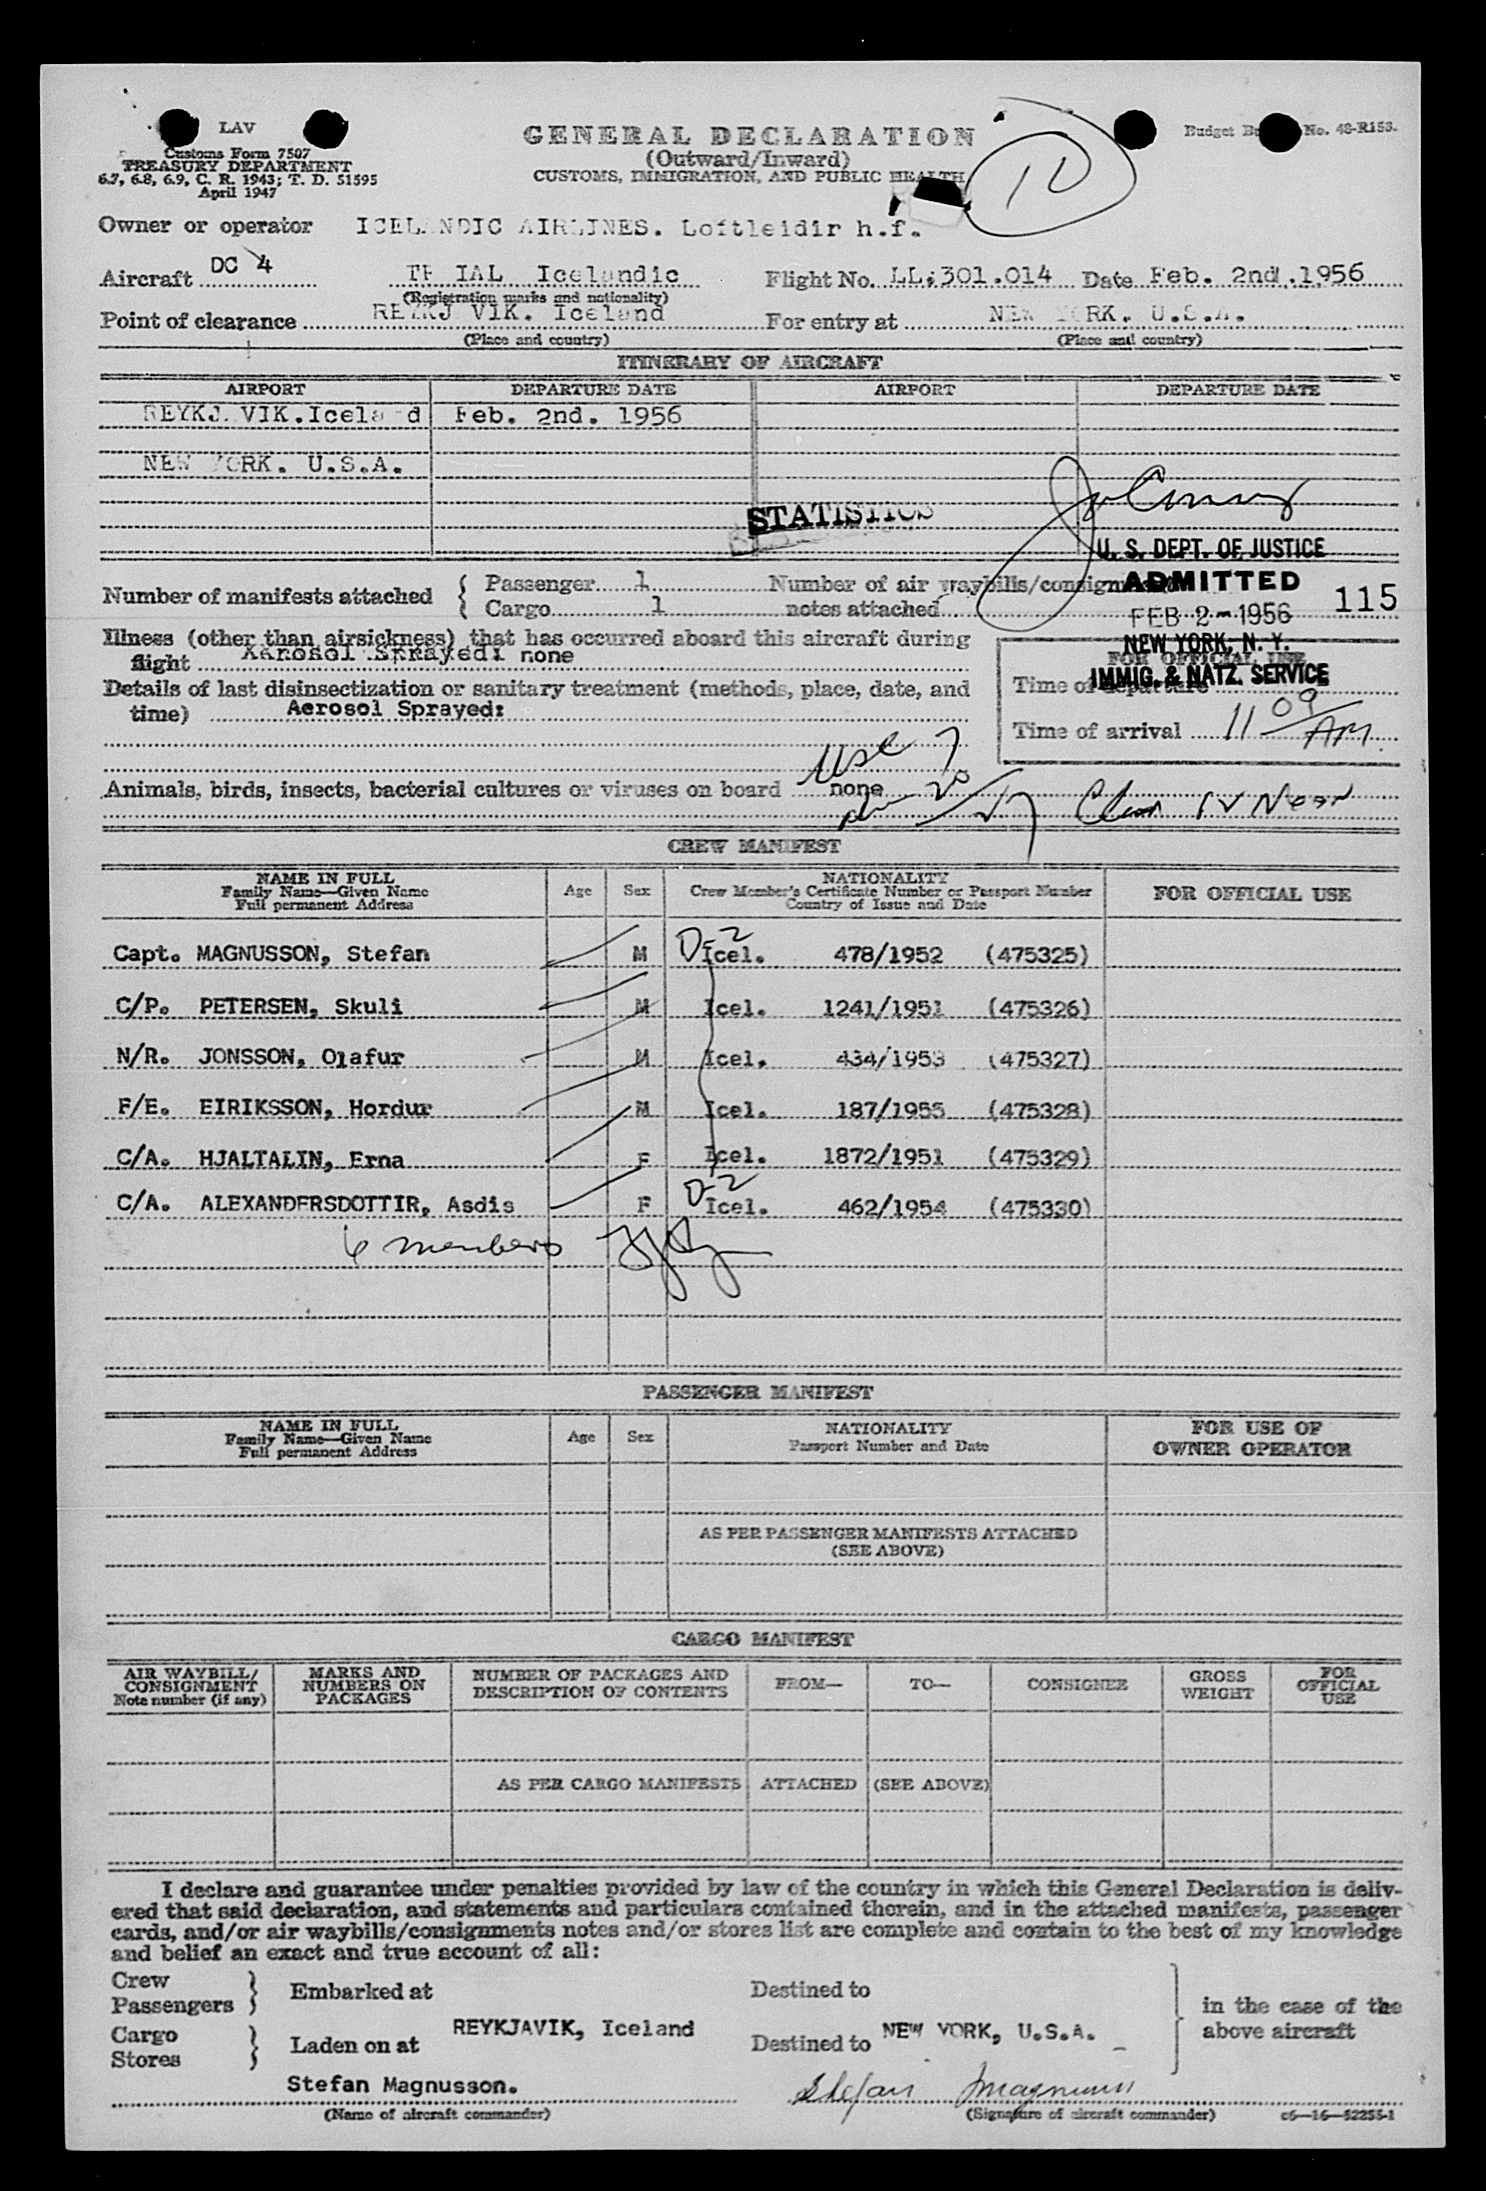 LAV
Customs Form 7507
TREASURY DEPARTMENT
6.7, 6.8, 6.9, C. R. 1943; T. D. 51595
April 1947
GENERAL DECLARATION
(Outward/Inward)
CUSTOMS, IMMIGRATION, AND PUBLIC HEALTH
Budget No. 48-R153.
Owner or operator ICELANDIC AIRLINES. Loftleidir h.f.
Aircraft DC 4 TF IAL Icelandic Flight No. LL:301.014 Date Feb. 2nd.1956
(Registration marks and nationality)
Point of clearance REYKJAVIK. Iceland For entry at NEW YORK. U.S.A.
(Place and country) (Place and country)
ITINERARY OF AIRCRAFT
AIRPORT DEPARTURE DATE AIRPORT DEPARTURE DATE
REYKJAVIK.Iceland Feb. 2nd. 1956
NEW YORK. U.S.A.
STATISTICS
U. S. DEPT. OF JUSTICE
ADMITTED
FEB 2 - 1956
NEW YORK, N. Y.
IMMIG. & NATZ. SERVICE
115
Number of manifests attached { Passenger 1 Number of air waybills/consignment
Cargo 1 notes attached
Illness (other than airsickness) that has occurred aboard this aircraft during
flight Aerosol Sprayed: none
FOR OFFICIAL USE
Details of last disinsectization or sanitary treatment (methods, place, date, and
time) Aerosol Sprayed:
Time of departure
Time of arrival 11 09 AM
Animals, birds, insects, bacterial cultures or viruses on board none
CREW MANIFEST
NAME IN FULL
Family Name—Given Name
Full permanent Address
Age Sex
NATIONALITY
Crew Member's Certificate Number or Passport Number
Country of Issue and Date
FOR OFFICIAL USE
D-2
Capt. MAGNUSSON, Stefan M Icel. 478/1952 (475325)
C/P. PETERSEN, Skuli M Icel. 1241/1951 (475326)
N/R. JONSSON, Olafur M Icel. 434/1953 (475327)
F/E. EIRIKSSON, Hordur M Icel. 187/1955 (475328)
C/A. HJALTALIN, Erna F Icel. 1872/1951 (475329)
D-2
C/A. ALEXANDERSDOTTIR, Asdis F Icel. 462/1954 (475330)
6 members
PASSENGER MANIFEST
NAME IN FULL
Family Name—Given Name
Full permanent Address
Age Sex
NATIONALITY
Passport Number and Date
FOR USE OF
OWNER OPERATOR
AS PER PASSENGER MANIFESTS ATTACHED
(SEE ABOVE)
CARGO MANIFEST
AIR WAYBILL/
CONSIGNMENT
Note number (if any)
MARKS AND
NUMBERS ON
PACKAGES
NUMBER OF PACKAGES AND
DESCRIPTION OF CONTENTS
FROM— TO— CONSIGNEE
GROSS
WEIGHT
FOR
OFFICIAL
USE
AS PER CARGO MANIFESTS ATTACHED (SEE ABOVE)
I declare and guarantee under penalties provided by law of the country in which this General Declaration is deliv-
ered that said declaration, and statements and particulars contained therein, and in the attached manifests, passenger
cards, and/or air waybills/consignments notes and/or stores list are complete and contain to the best of my knowledge
and belief an exact and true account of all:
Crew
Passengers } Embarked at Destined to
in the case of the
above aircraft
Cargo
Stores } Laden on at REYKJAVIK, Iceland Destined to NEW YORK, U.S.A.
Stefan Magnusson. Stefan Magnusson
(Name of aircraft commander) (Signature of aircraft commander) c6—16—52255-1